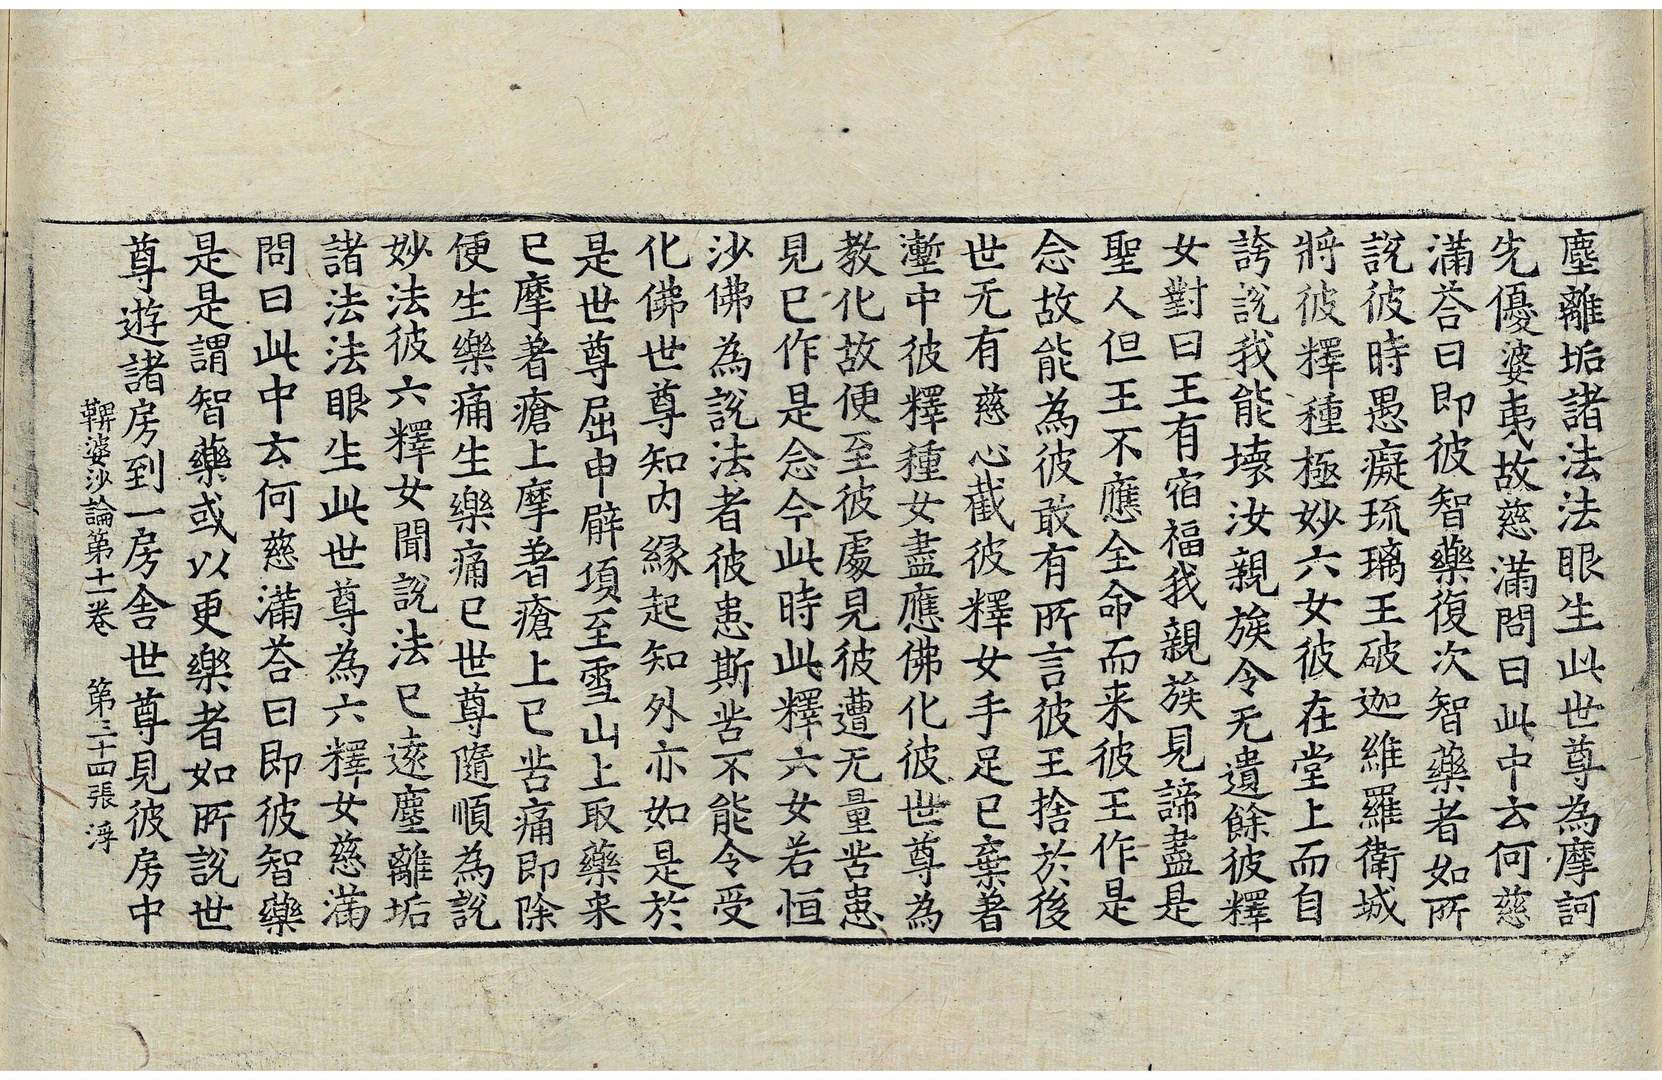 塵離垢諸法法眼生此世尊為摩訶
先優婆夷故慈滿問曰此中云何慈
滿荅曰即彼智藥復次智藥者如所
說彼時愚癡琉璃王破迦維羅衛城
將彼釋種極妙六女彼在堂上而自
誇說我能壞汝親族令无遺餘彼釋
女對曰王有宿福我親族見諦盡是
聖人但王不應全命而来彼王作是
念故能為彼敢有所言彼王捨於後
世无有慈心截彼釋女手足已棄著
壍中彼釋種女盡應佛化彼世尊為
教化故便至彼處見彼遭无量苦患
見已作是念今此時此釋六女若恒
沙佛為說法者彼患斯苦不能令受
化佛世尊知内緣起知外亦如是於
是世尊屈申臂項至雪山上取藥来
已摩著瘡上摩著瘡上已苦痛即除
便生樂痛生樂痛已世尊隨順為說
妙法彼六釋女聞說法已遠塵離垢
諸法法眼生此世尊為六釋女慈滿
問曰此中云何慈滿荅曰即彼智藥
是是謂智藥或以更樂者如所說世
尊遊諸房到一房舍世尊見彼房中
鞞婆沙論第十一卷　第三十四張　浮